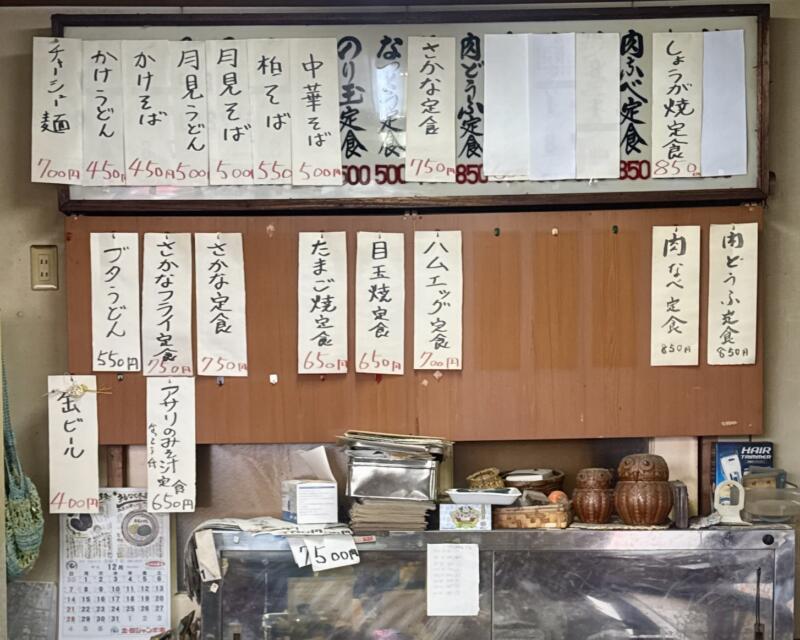 しょうが焼定食 850
肉ふべ定食 850
肉どうふ定食 850
さかな定食 750円
なっとう定食 500
のり玉定食 500
中華そば 500円
柏そば 550
月見そば 500
月見うどん 500
かけそば 450円
かけうどん 450円
チャーシュー麺 700円
肉どうふ定食 850円
肉なべ定食 850円
ハムエッグ定食 700円
目玉焼定食 650円
たまご焼定食 650円
さかな定食 750円
さかなフライ定食 750円
ブタうどん 550円
アサリのみそ汁定食 650円
缶ビール 400円
7500円
HAIR
TRIMMER
12月